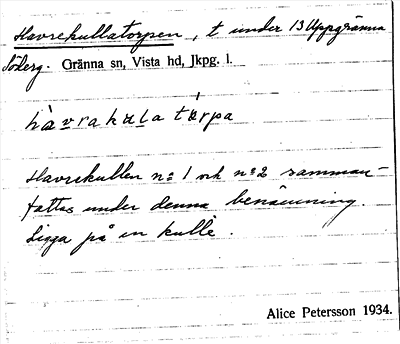 Havrekullatorpen, t under 13 Uppgränna
Söderg. Gränna sn, Vista hd, Jkpg. l.
hàvrakula tɷ́rpa
Havrekullen nº 1 och nº 2 samman-
fattas under denna benämning.
Ligga på en kulle.
Alice Petersson 1934.